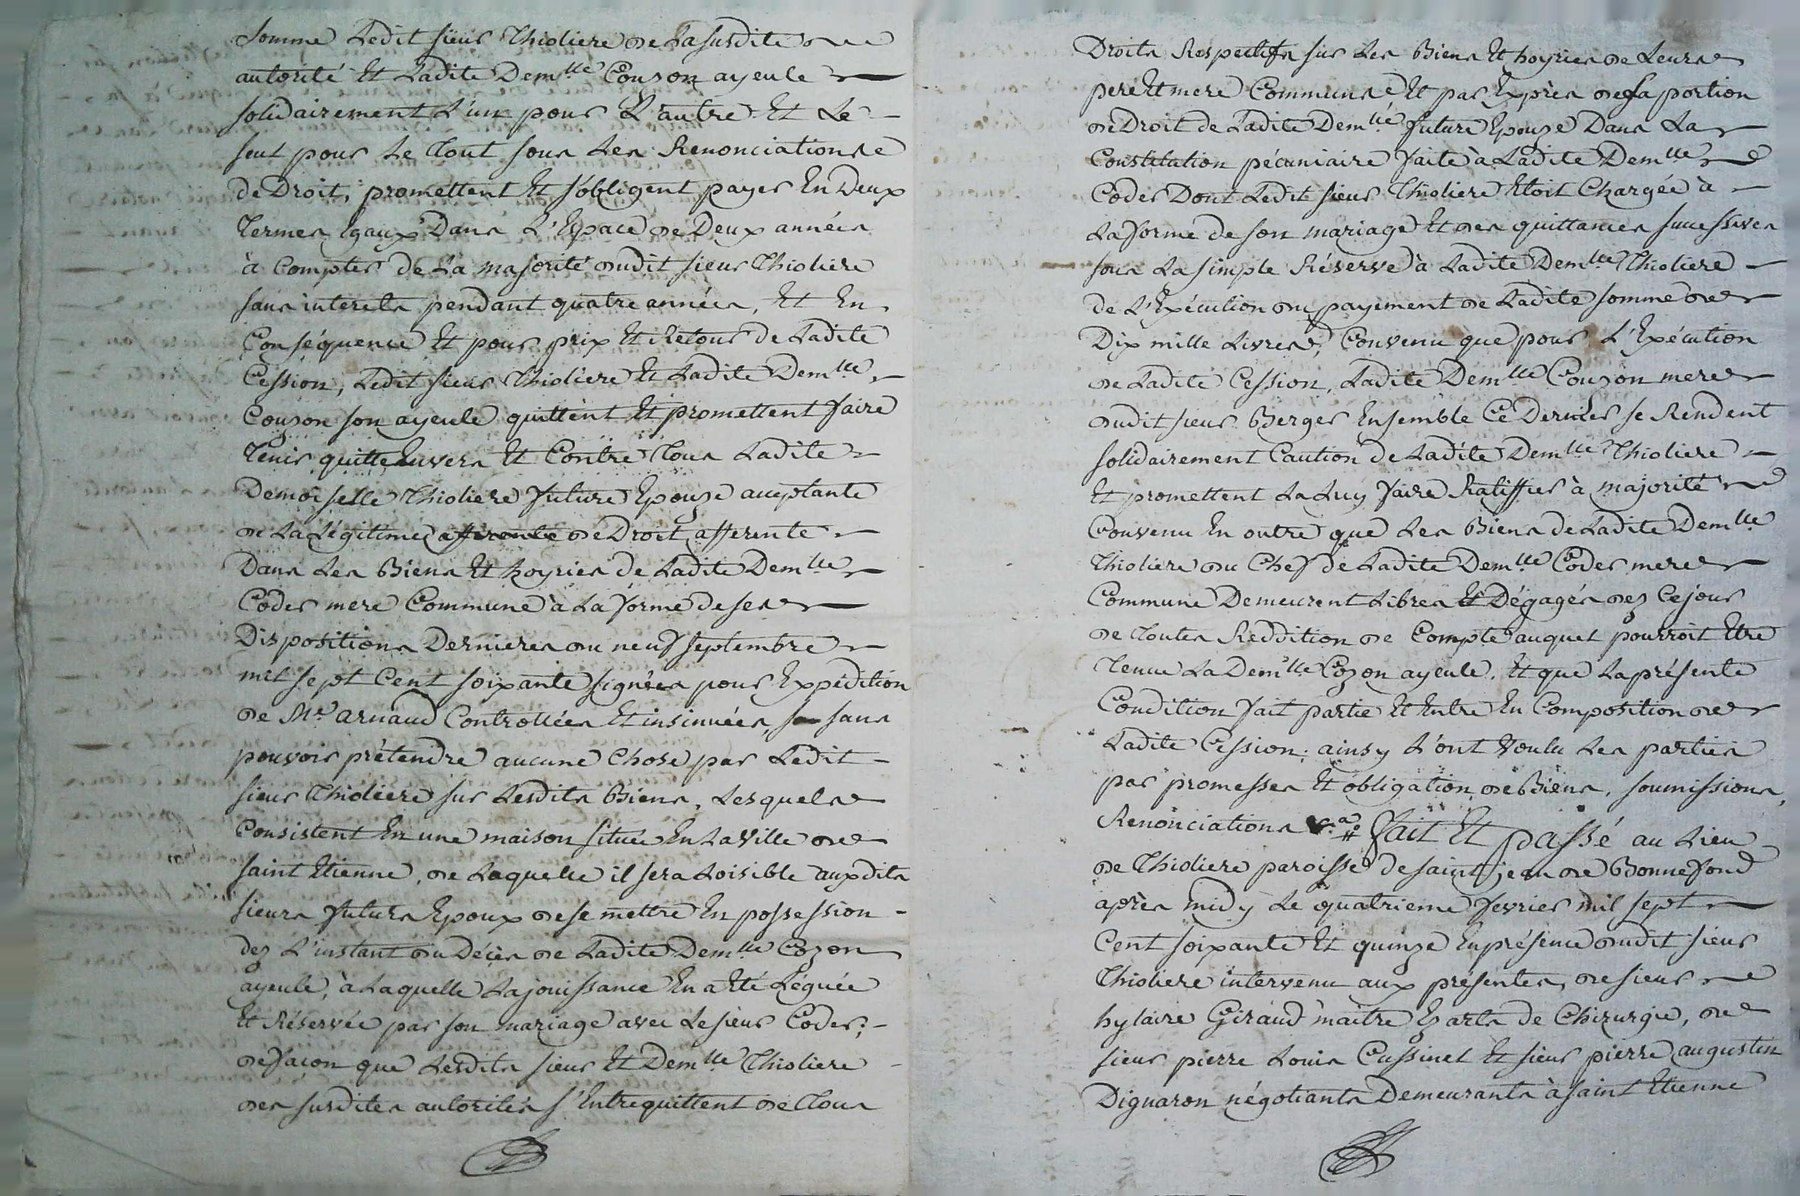 somme Ledit sieur Thioliere de La susdite
autorité Et Ladite Dem.lle Couzon ayeule
solidairement L'un pour L'autre Et Le
seul pour Le Tout sous Les Renonciations
de Droit, promettent Et s'obligent payer En Deux
Termes Egaux Dans L'Espace de Deux années
à Compter de La majorité dudit sieur Thioliere
sans interets pendant quatre années, Et En
Conséquence Et pour prix Et Retour de Ladite
Cession, Ledit sieur Thioliere Et Ladite Dem.lle
Couzon son ayeule quittent Et promettent faire
Tenir quitte Envers Et Contre Tous Ladite
Demoiselle Thioliere future Epouse acceptante
de La Légitime afferente de Droit afferente
Dans Les Biens Et hoyries de Ladite Dem.lle
Coder mere Commune à La forme de ses
Dispositions Dernieres du neuf septembre
mil sept Cent soixante signées pour Expédition
de M.e arnaud Controllées Et insinuées, sans
pouvoir prétendre aucune Chose par Ledit
sieur Thioliere sur Lesdits Biens, Lesquels
Consistent En une maison située En La Ville de
saint Etienne, de Laquelle il sera Loisible auxdits
sieurs futurs Epoux de se mettre En possession
dez L'instant du Décès de Ladite Dem.lle Cozon
ayeule, à Laquelle La jouissance En a Eté Léguée
Et Réservée par son mariage avec Le sieur Coder;
de façon que Lesdits sieur Et Dem.lle Thioliere
des susdites autorités s'Entrequittent de Tous
Droits Respectifs sur Les Biens Et hoyries de Leurs
pere Et mere Communs Et par Exprès de sa portion
de Droit de Ladite Dem.lle future Epouse Dans La
Constitution pécuniaire faite à Ladite Dem.lle
Coder Dont Ledit sieur Thioliere Etoit Chargée à
La forme de son mariage Et des quittances successives
sous La simple Réserve à Ladite Dem.lle Thioliere
de L'Exécution du payement de Ladite somme de
Dix mille Livres, Convenu que pour L'Exécution
de Ladite Cession, Ladite Dem.lle Couzon mere
dudit sieur Berger Ensemble Ce Dernier se Rendent
solidairement Caution de Ladite Dem.lle Thioliere
Et promettent La Luy faire Ratiffier à majorité
Convenu En outre que Les Biens de Ladite Dem.lle
Thioliere du Chef de Ladite Dem.lle Coder mere
Commune Demeurent Libres Et Dégagés dez Cejour
de Toutes Reddition de Compte auquel pourroit Etre
Tenue La Dem.lle Cozon ayeule, Et que La présente
Condition fait partie Et Entre En Composition de
Ladite Cession; ainsy L'ont Voulu Les parties
par promesses Et obligation de Biens, soumissions,
Renonciations &.a fait Et passé au Lieu
de Thioliere paroisse de saint jean de Bonnefond
après midy Le quatrieme fevrier mil sept
Cent soixante Et quinze En présence dudit sieur
Thioliere intervenu aux présentes, de sieur
hylaire Giraud maitre Ez arts de Chirurgie, de
sieur pierre Louis Cussinel Et sieur pierre augustin
Dignaron négotiants Demeurants à saint Etienne